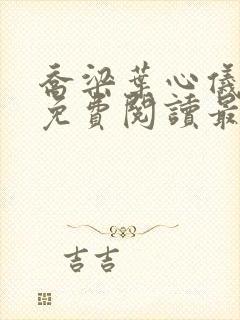 喬梁葉心儀
免費閱讀最
吉吉